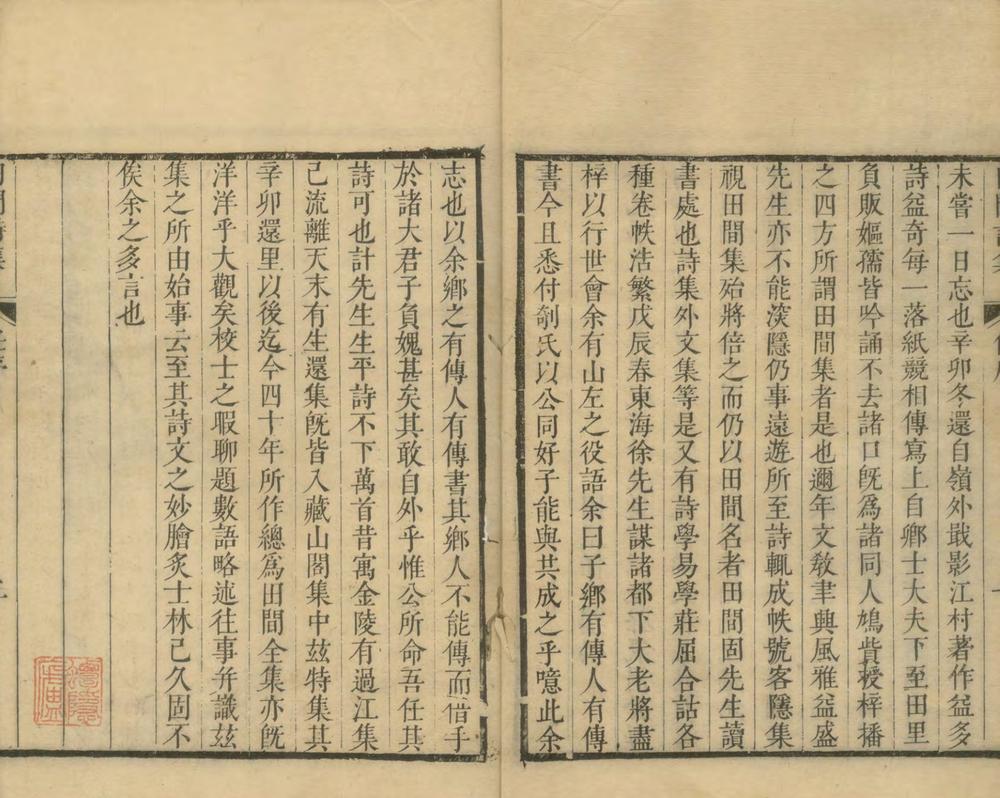 未嘗一日忘也辛卯冬還自嶺外戢影江村著作益多
詩益奇每一落紙競相傳寫上自鄉士大夫下至田里
負販嫗孺皆吟誦不去諸口旣爲諸同人鳩貲授梓播
之四方所謂田間集者是也邇年文敎聿興風雅益盛
先生亦不能深隱仍事遠遊所至詩輒成帙號客隱集
視田間集殆將倍之而仍以田間名者田間固先生讀
書處也詩集外文集等是又有詩學易學莊屈合詁各
種卷帙浩繁戊辰春東海徐先生謀諸都下大老將盡
梓以行世會余有山左之役語余曰子鄉有傳人有傳
書今且悉付剞氏以公同好子能與共成之乎噫此余
志也以余鄉之有傳人有傳書其鄉人不能傳而借手
於諸大君子負媿甚矣其敢自外乎惟公所命吾任其
詩可也計先生生平詩不下萬首昔寓金陵有過江集
己流離天末有生還集旣皆入藏山閣集中玆特集其
辛卯還里以後迄今四十年所作總爲田間全集亦旣
洋洋乎大觀矣校士之暇聊題數語略述往事幷識玆
集之所由始事云至其詩文之妙膾炙士林己久固不
俟余之多言也